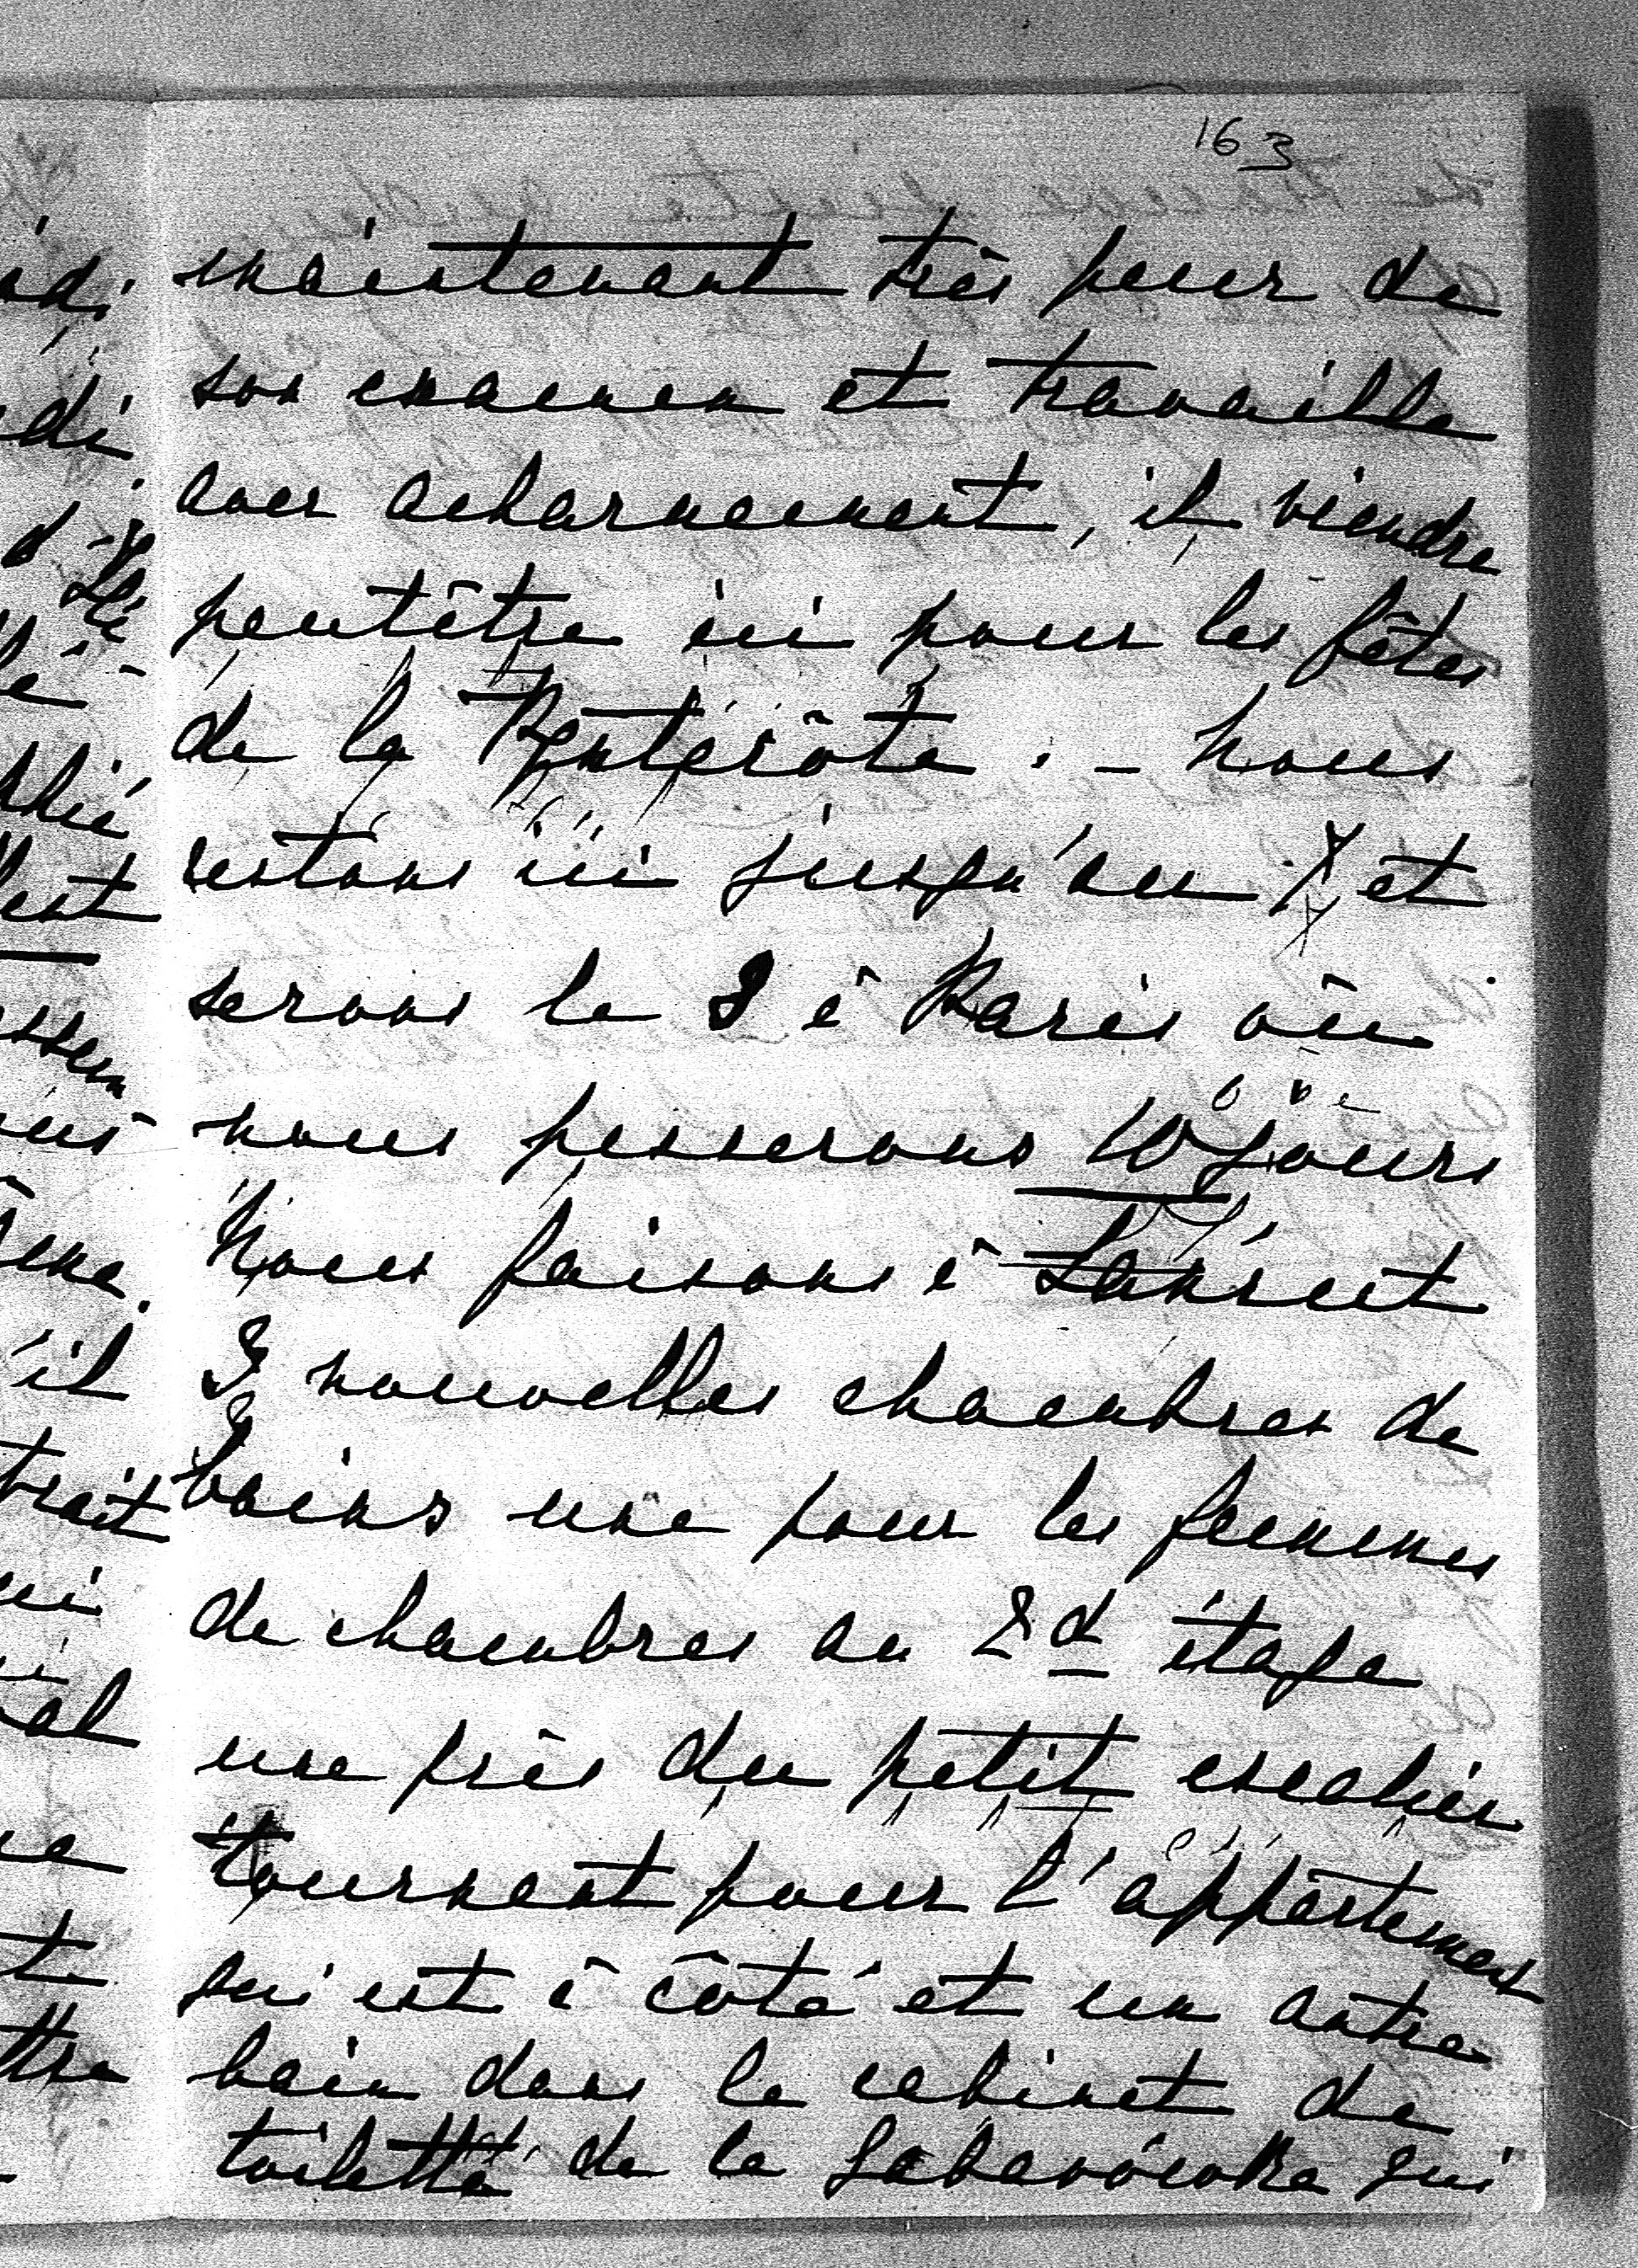 163
maintenant très peur de
son examen et travaille
avec acharnement, il viendra
peutêtre ici pour les fêtes
de la Pentecôte. - Nous
restons ici jusqu'au 7 et
serons le 8 à Paris où
nous passerons 10 jours
Nous faisons à Łańcut
3 nouvelles chambres de
bains une pour les femmes
de chambres au 2d étage
une près du petit escalier
tournant pour l'appartement
qui est à côté et un autre
bain dans le cabinet de
toilette de la qui